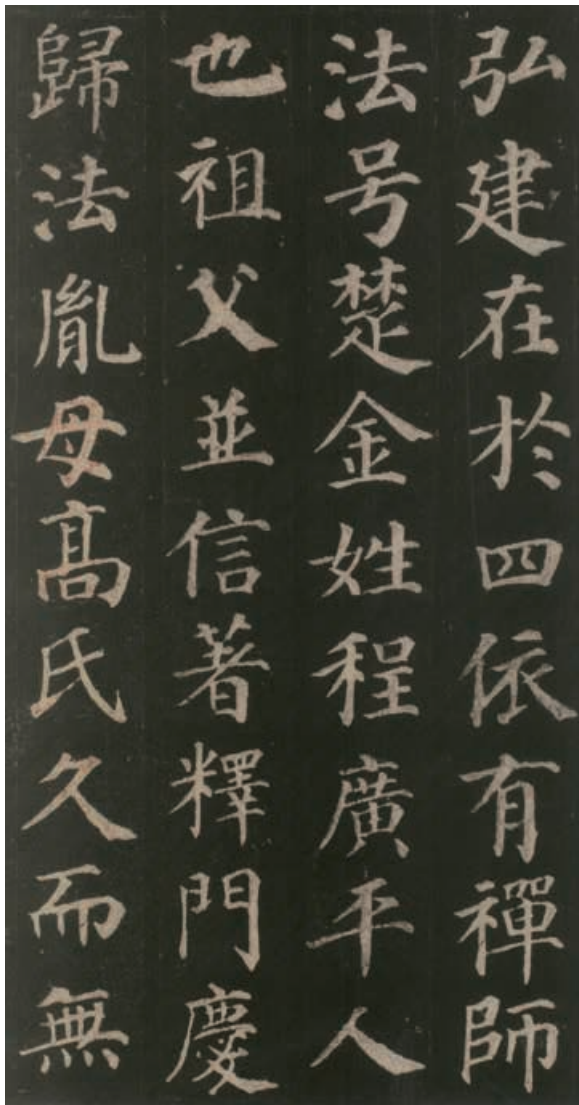 弘建在於四依有禪師
法号楚金姓程廣平人
也祖父並信著釋門慶
歸法胤母高氏久而無